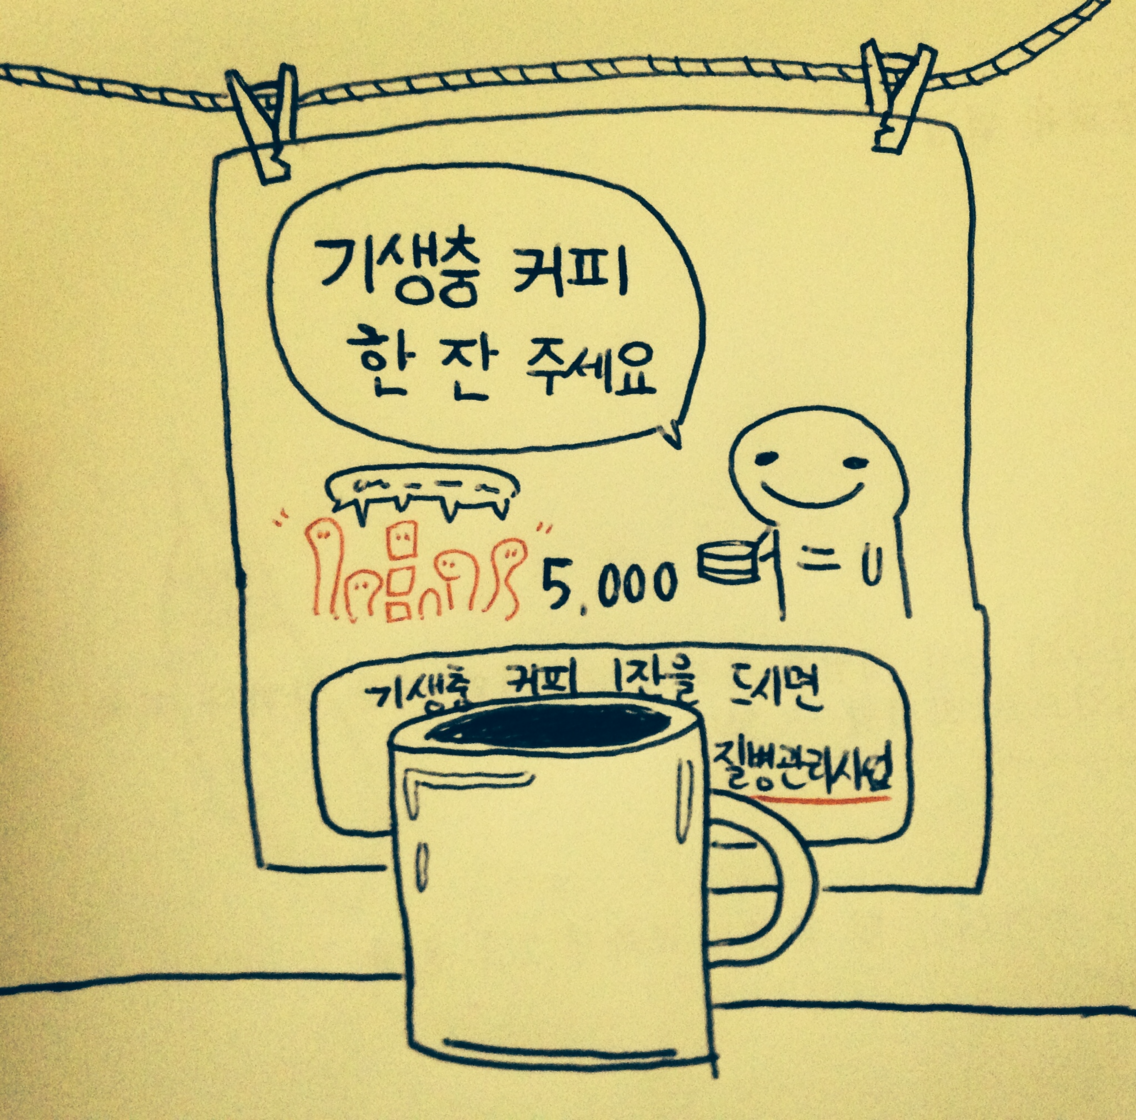 기생충 커피
한 잔 주세요
5,000
기생충 커피 1잔을 드시면
질병관리사업